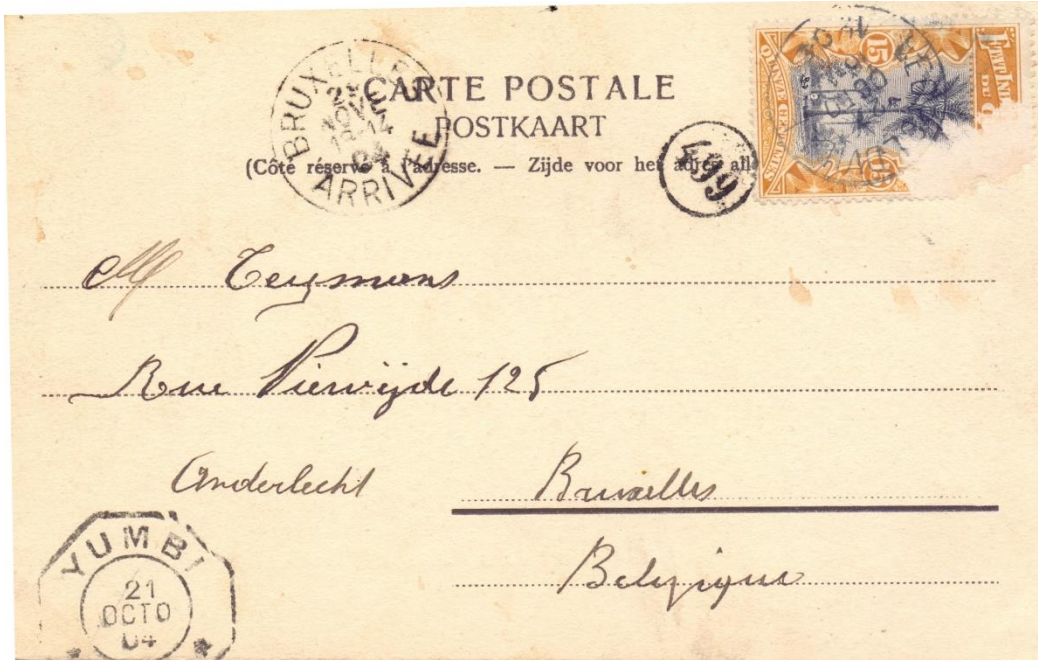 CARTE POSTALE
POSTKAART
(Côté réservé à l'adresse. — Zijde voor het adres all
BRUXELLES
NOV
04
ARRIVÉE
499
15
15
M Teymans
Rue Vierwijde 125
Anderlecht Bruxelles
Belgique
YUMBI
21
OCTO
04